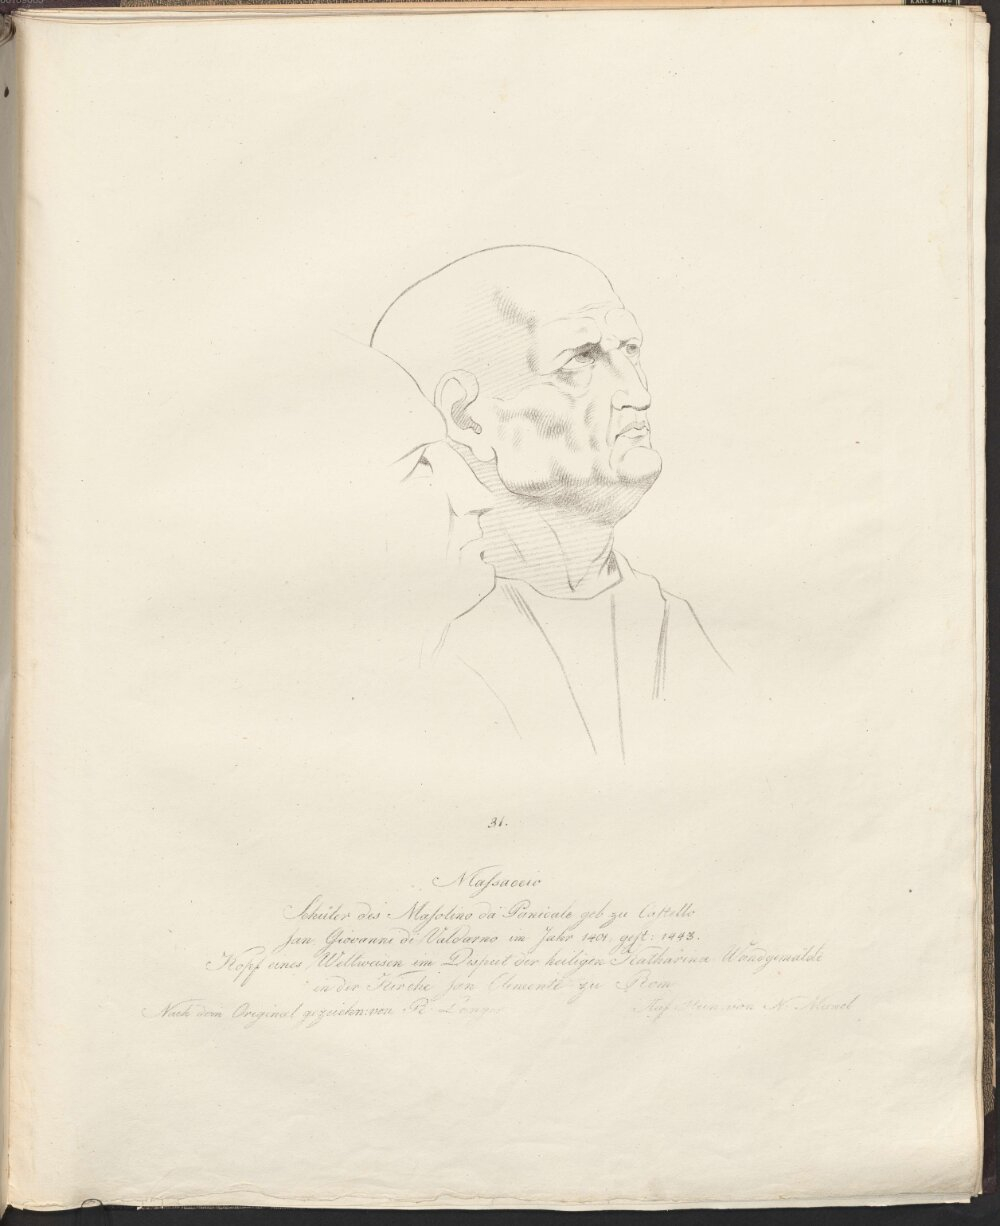 31.
Massaccio
Schüler des Masolino da Panicale geb zu Castello
San Giovanni di Valdarno im Jahr 1401, gest: 1443.
Kopf eines Weltweisen im Disput der heiligen Katharina Wandgemälde
in der Kirche San Clemente zu Rom
Nach dem Original gezeichn: von R: Langer
Auf Stein von N. Muxel